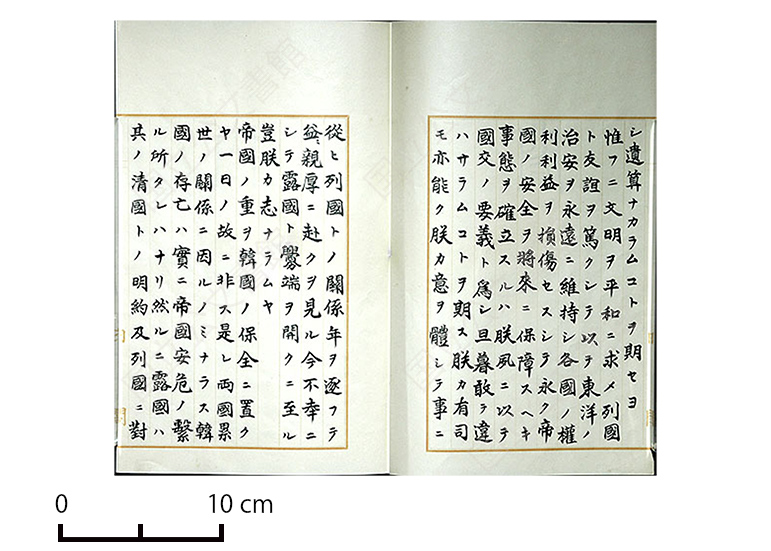 シ遺算ナカラムコトヲ期セヨ
惟フニ文明ヲ平和ニ求メ列國
ト友誼ヲ篤クシテ以テ東洋ノ
治安ヲ永遠ニ維持シ各國ノ權
利利益ヲ損傷セスシテ永ク帝
國ノ安全ヲ將來ニ保障スヘキ
事態ヲ確立スルハ朕夙ニ以テ
國交ノ要義ト爲シ旦暮敢テ違
ハサラムコトヲ期ス朕カ有司
モ亦能ク朕カ意ヲ體シテ事ニ
從ヒ列國トノ關係年ヲ逐フテ
益〻親厚ニ赴クヲ見ル今不幸ニ
シテ露國ト釁端ヲ開クニ至ル
豈朕カ志ナラムヤ
帝國ノ重ヲ韓國ノ保全ニ置ク
ヤ一日ノ故ニ非ス是レ兩國累
世ノ關係ニ因ルノミナラス韓
國ノ存亡ハ實ニ帝國安危ノ繫
ル所タレハナリ然ルニ露國ハ
其ノ清國トノ明約及列國ニ對
0 10 cm